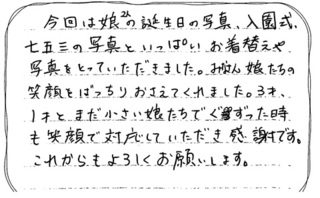 今回は娘2人の誕生日の写真、入園式、
七五三の写真といっぱいお着替えや
写真をとっていただきました。みなさん娘たちの
笑顔をばっちりおさえてくれました。3才、
1才とまだ小さい娘たちでぐずった時
も笑顔で対応していただき感謝です。
これからもよろしくお願いします。